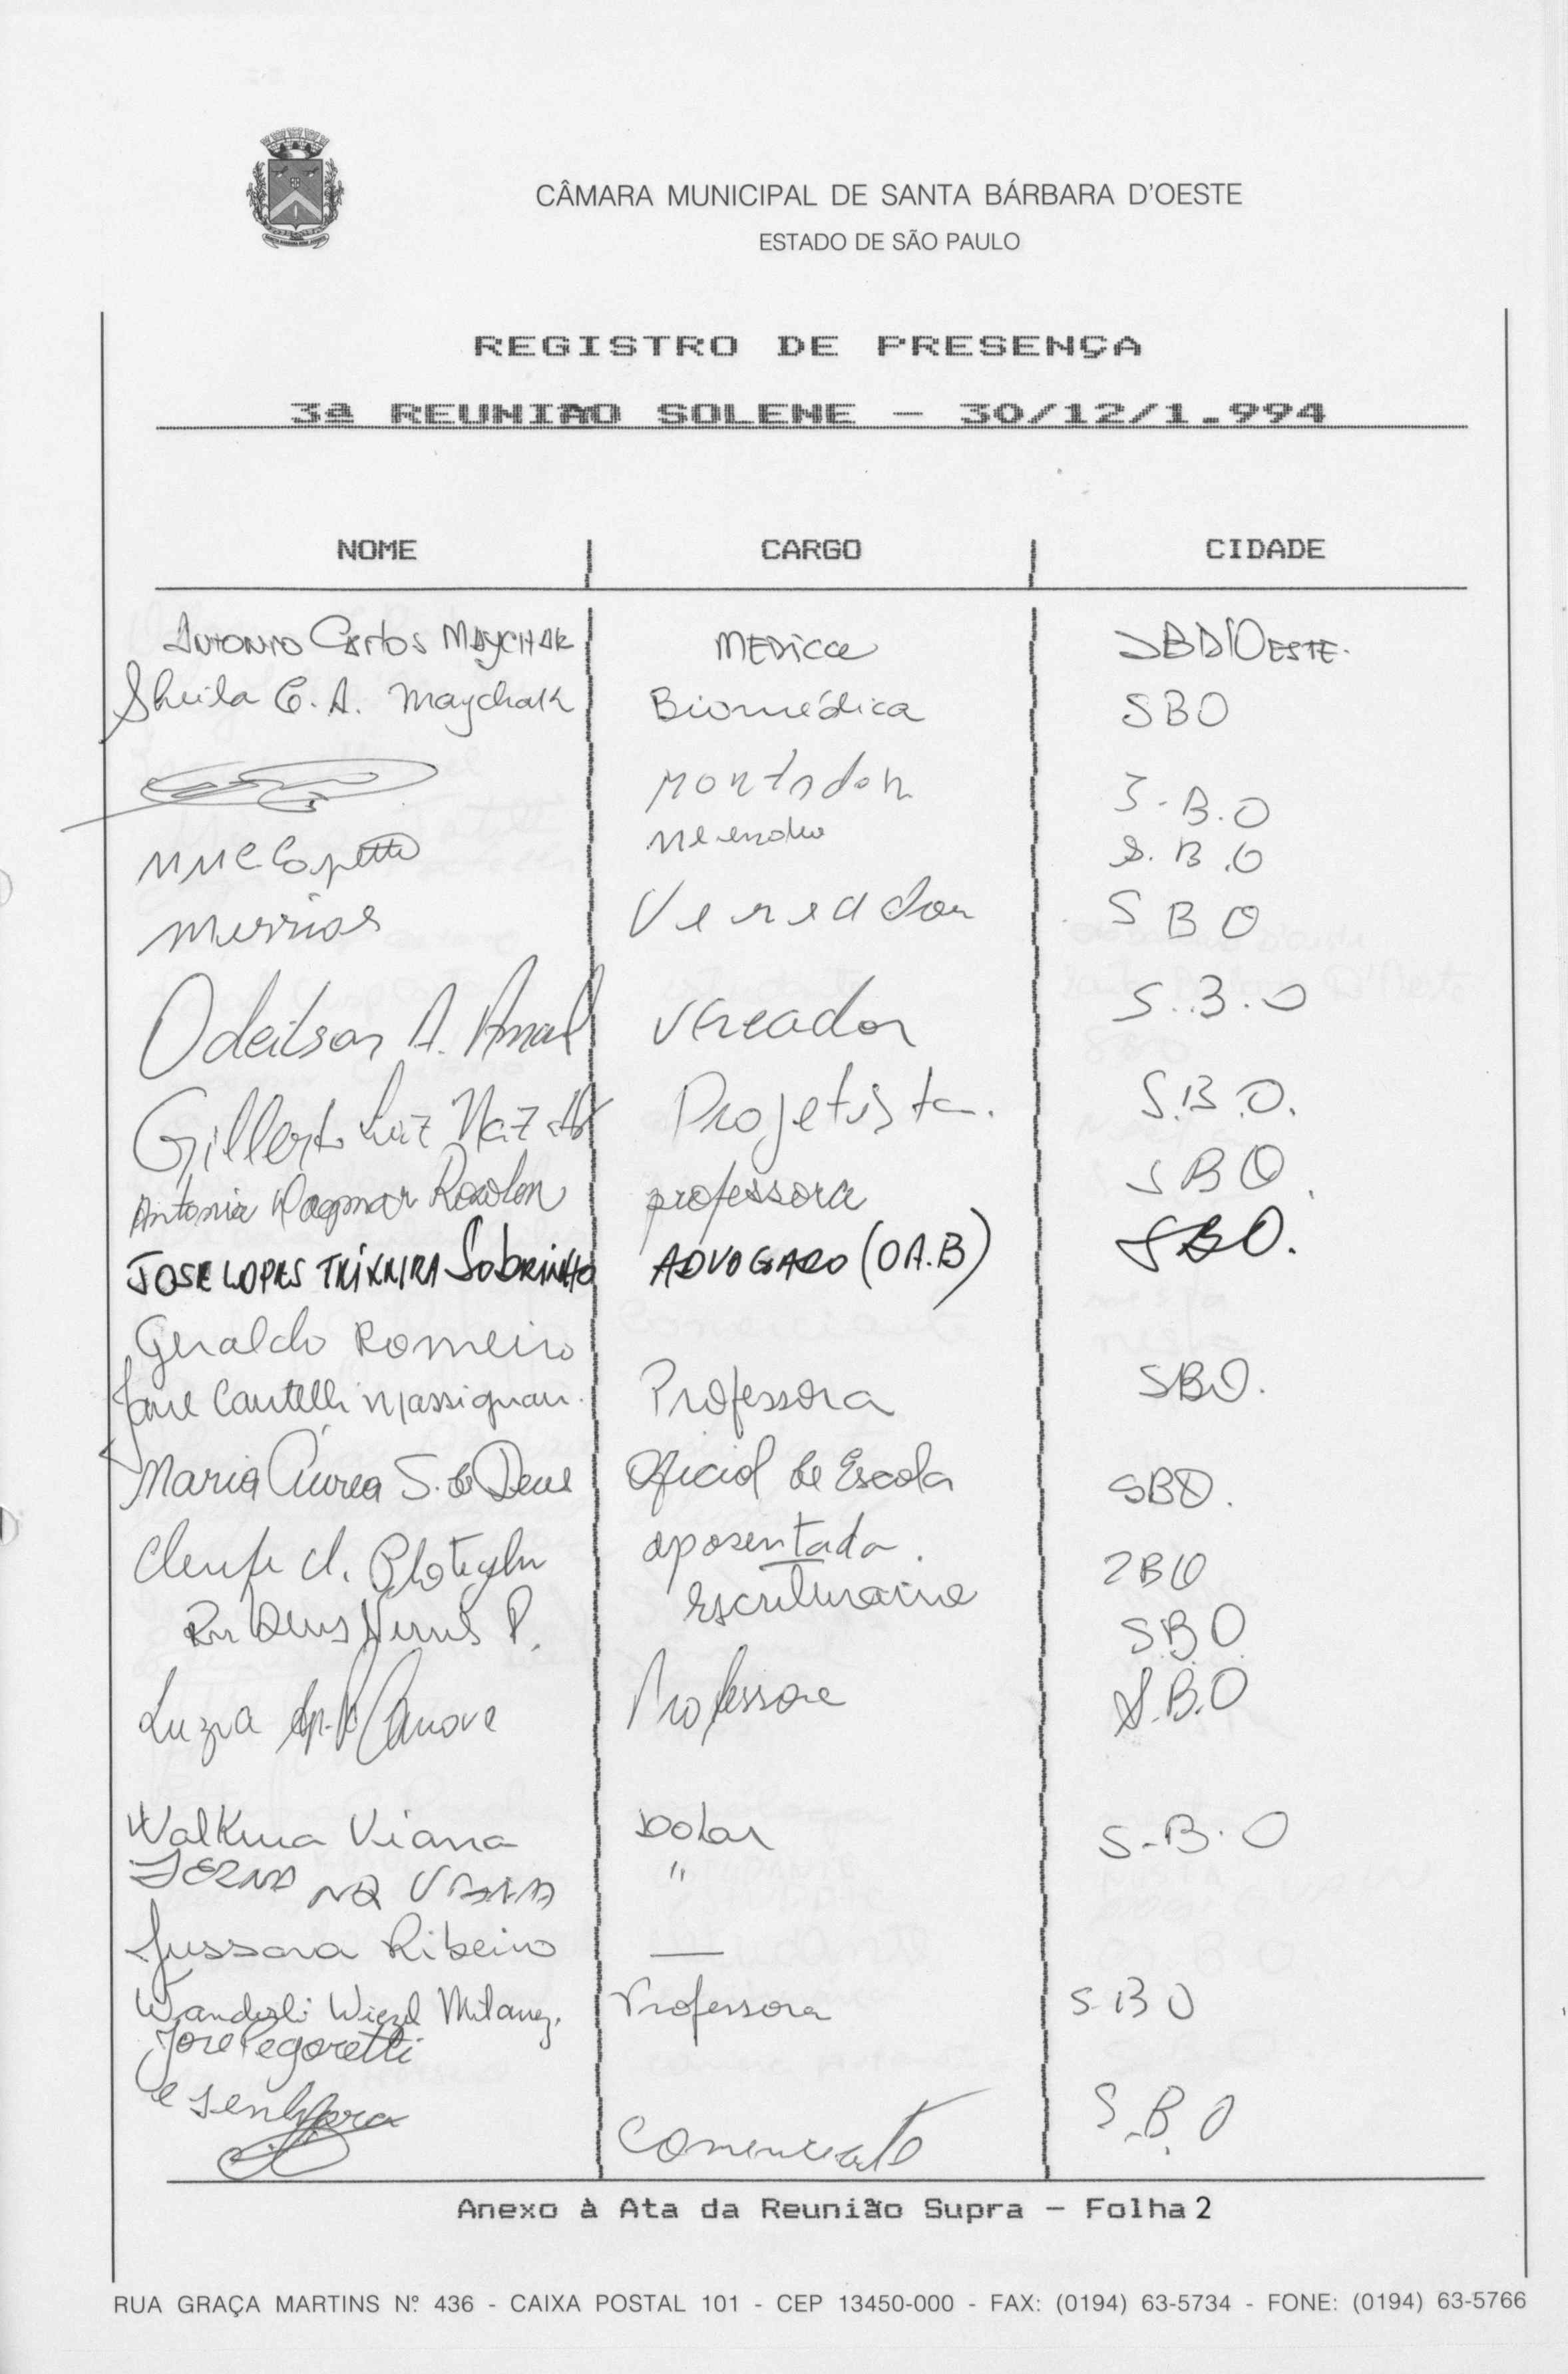 CÂMARA MUNICIPAL DE SANTA BÁRBARA D'OESTE
ESTADO DE SÃO PAULO
REGISTRO DE PRESENÇA
3ª REUNIÃO SOLENE - 30/12/1.994
NOME CARGO CIDADE
Antonio Carlos Maychak MEDICO SBD'OESTE.
Sheila C. A. Maychak Biomédica SBO
montador S.B.O
S.B.O
Vereador SBO
Odeilson A. Amal Vereador S.B.O
Gilberto Luiz Projetista. S.B.O.
Antonia Dagmar professora SBO
JOSE LOPES TEIXEIRA Sobrinho ADVOGADO (OA.B) SBO.
Geraldo Romeiro
Jane Cantelli Massignan. Professora SBO.
Maria Áurea S. de Deus Oficial de Escola SBO.
aposentada. SBO
Rubens Nunes P. Escriturario SBO
Luzia Ap. Canova Professora S.B.O
Walkiria Viana Dolar S.B.O
"
Jussara Ribeiro —
Wanderli Wiezel Milanez. Professora SBO
Jose Pegoretti
e senhora
S.B.O
Anexo à Ata da Reunião Supra - Folha 2
RUA GRAÇA MARTINS Nº 436 - CAIXA POSTAL 101 - CEP 13450-000 - FAX: (0194) 63-5734 - FONE: (0194) 63-5766